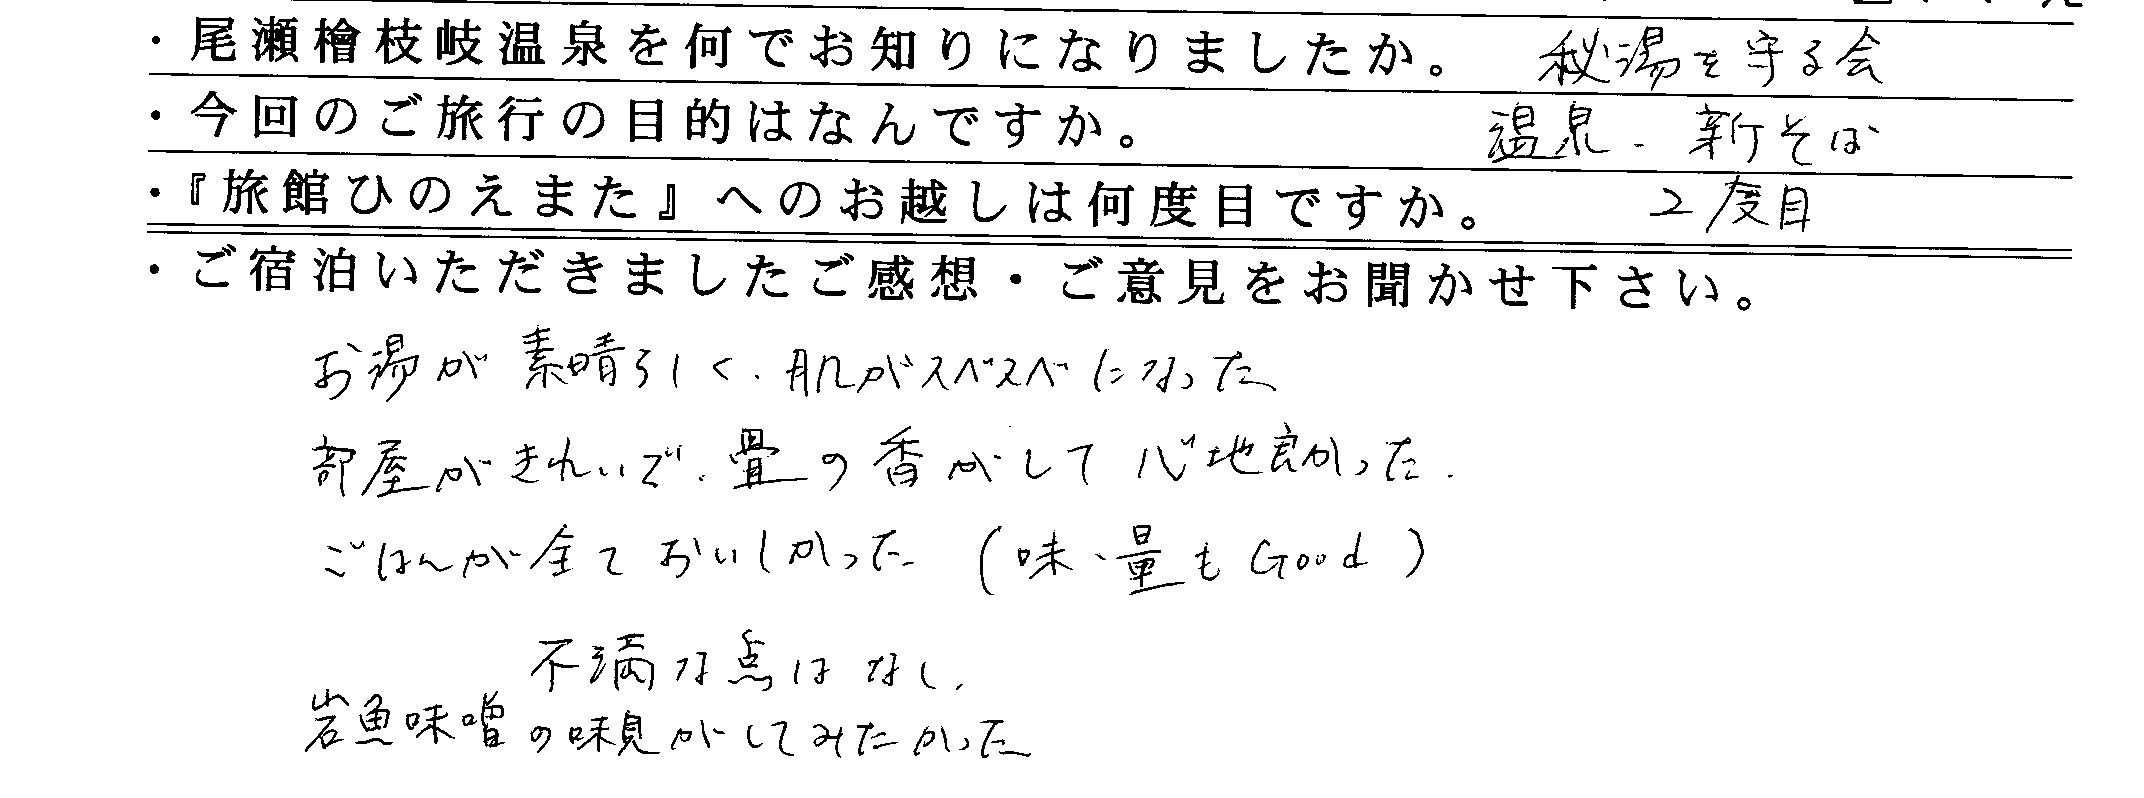 ・尾瀬檜枝岐温泉を何でお知りになりましたか。 秘湯を守る会
・今回のご旅行の目的はなんですか。 温泉．新そば
・『旅館ひのえまた』へのお越しは何度目ですか。 2度目
・ご宿泊いただきましたご感想・ご意見をお聞かせ下さい。
お湯が素晴らしく、肌がスベスベになった
部屋がきれいで、畳の香がして心地良かった．
ごはんが全ておいしかった（味、量もGood）
不満な点はなし．
岩魚味噌の味見がしてみたかった